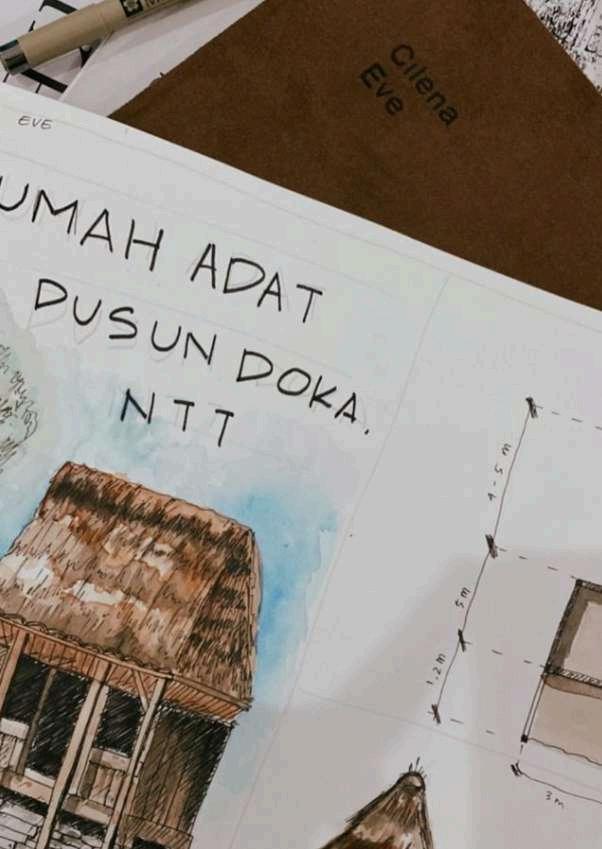 Cilena
Eve
EVE
UMAH ADAT
DUSUN DOKA.
NTT
4-5 m
5m
1.2 m
3m